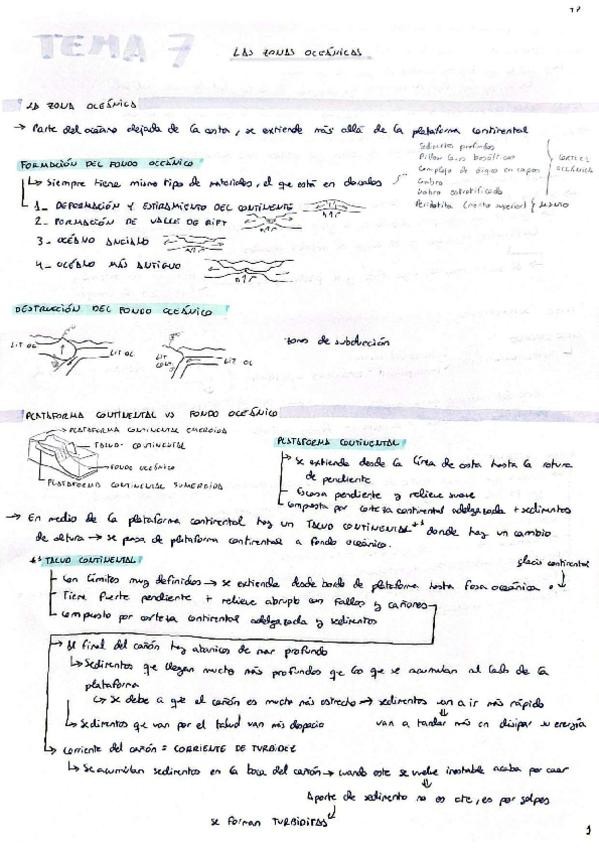 TEMA 7
LAS ZONAS OCEÁNICAS
LA ZONA OCEÁNICA
→ Parte del océano alejada de la costa, se extiende más allá de la plataforma continental
FORMACIÓN DEL FONDO OCEÁNICO
Siempre tiene mismo tipo de materiales, el que está en dorsales
Sedimentos profundos
Pillow lavas basálticas
Complejo de diques en capas
Gabro
Gabro estratificado
Peridotita (manto superior) } MANTO
CORTEZA OCEÁNICA
1_ DEFORMACIÓN Y ESTIRAMIENTO DEL CONTINENTE
2_ FORMACIÓN DE VALLE DE RIFT
3_ OCÉANO ANCIANO
4_ OCÉANO MÁS ANTIGUO
DESTRUCCIÓN DEL FONDO OCEÁNICO
LIT OC
LIT OC
LIT CONT
LIT OC
zona de subducción
PLATAFORMA CONTINENTAL VS FONDO OCEÁNICO
PLATAFORMA CONTINENTAL EMERGIDA
TALUD CONTINENTAL
FONDO OCEÁNICO
PLATAFORMA CONTINENTAL SUMERGIDA
PLATAFORMA CONTINENTAL
Se extiende desde la línea de costa hasta la rotura
de pendiente
Escasa pendiente y relieve suave
Compuesta por corteza continental adelgazada + sedimentos
→ En medio de la plataforma continental hay un TALUD CONTINENTAL*1 donde hay un cambio
de altura → se pasa de plataforma continental a fondo oceánico.
*1 TALUD CONTINENTAL
glacis continental
Con límites muy definidos → se extiende desde borde de plataforma hasta fosa oceánica o
Tiene fuerte pendiente + relieve abrupto con fallas y cañones
Compuesto por corteza continental adelgazada y sedimentos
→ Al final del cañón hay abanicos de mar profundo
↳ Sedimentos que llegan mucho más profundos que lo que se acumulan al lado de la
plataforma
↳ Se debe a que el cañón es mucho más estrecho → sedimentos van a ir más rápido
↳ Sedimentos que van por el talud van más despacio
van a tardar más en disipar su energía
→ Corriente del cañón = CORRIENTE DE TURBIDEZ
↳ Se acumulan sedimentos en la boca del cañón → cuando este se vuelve inestable acaba por caer
Aporte de sedimento no es cte, es por golpes
se forman TURBIDITAS
1